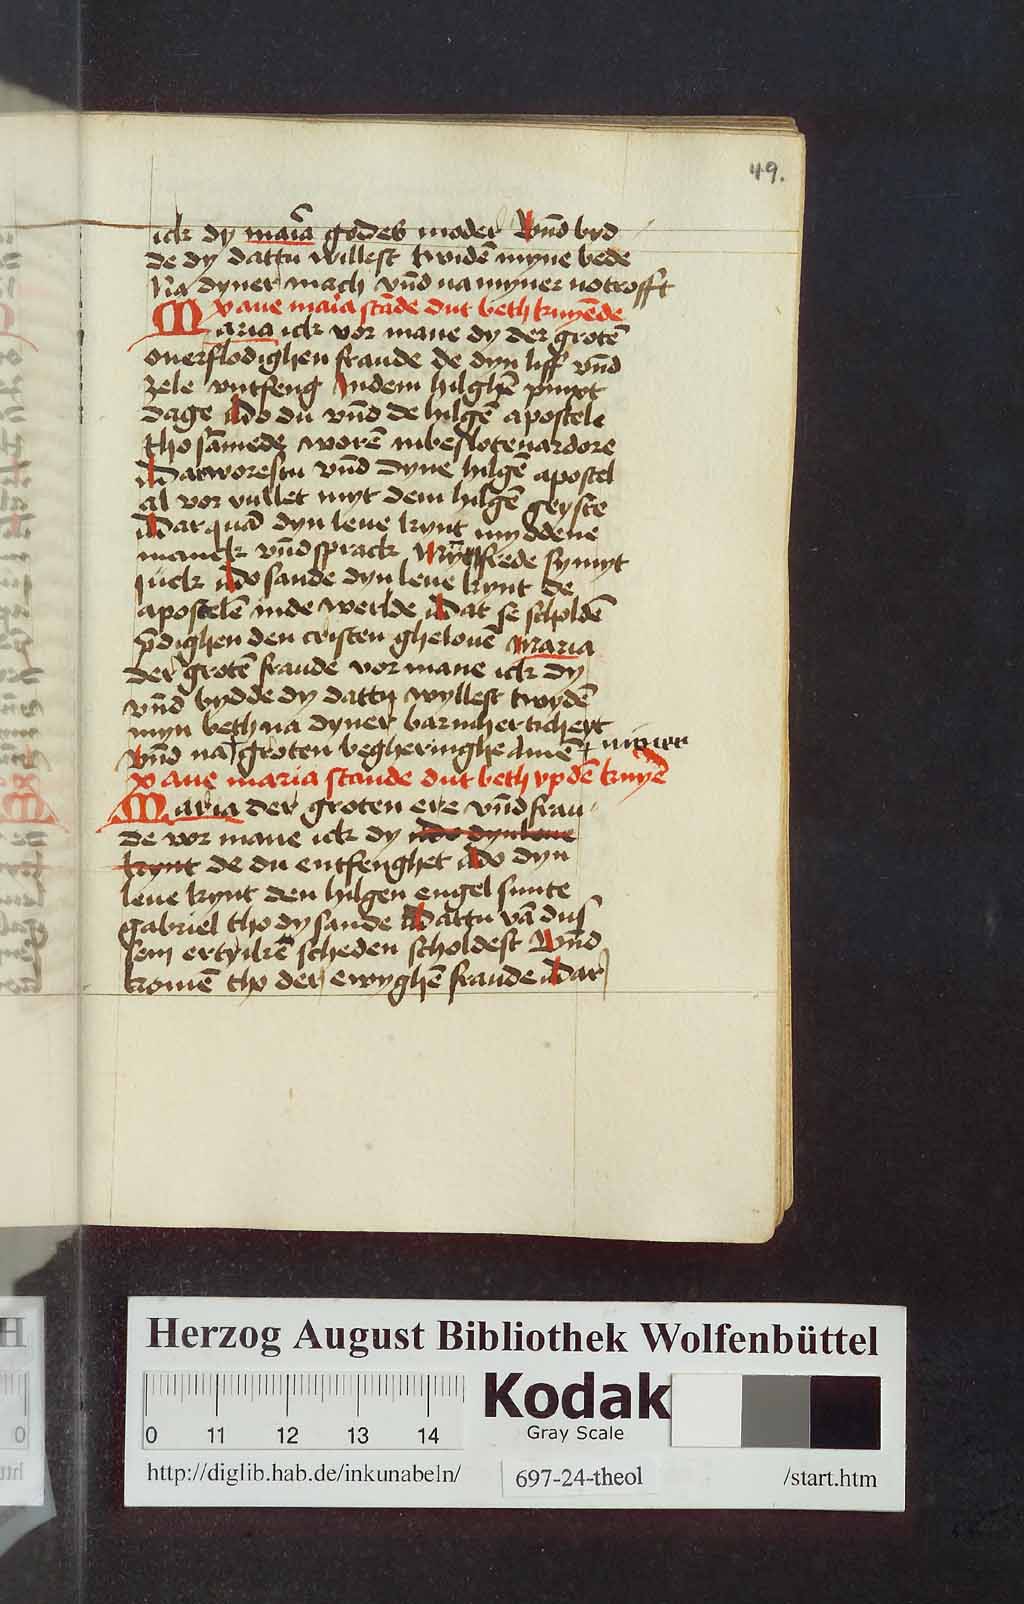 49.
ick dy maīa godes moder Vnd̄ byd
de dy dattu willest twidē myne bede
Na dyner mach vnd̄ na myner notrofft
X aue maīa stāde dut beth knyēde
Maria ick vor mane dy der grotē
ouerflodighen fraude de dyn liff vnd̄
zele vntfeng Indem hilghē pinxt
dage Do du vnd̄ de hilgē apostele
tho sāmede worē inbeslotenardore
Dar worestu vnd̄ dyne hilgē apostel
al vor vullet myt dem hilgē geyste
Dar quā dyn leue kynt myddene
manck vnd̄ sprack Myn frede sy myt
juck Do sande dyn leue kynt de
apostelē inde werlde Dat se scholdē
p̄dighen den cristen ghelouē Maria
der grotē fraude vor mane ick dy
vnd̄ bydde dy dattu wyllest twydē
myn beth na dyner barmherticheyt
Vnd̄ na groten begheringhe Amē + myner
X aue maria stande dut beth vp dē knyē
Maria der groten ere vnd̄ frau
de vor mane ick dy do dyn leue
kynt de du entfenghet do dyn
leue kynt den hilgen engel sunte
gabriel tho dy sande Dattu vā dus
sem ertrikē scheden scholdest Vnd̄
komē tho der ewyghē fraude Dar
Herzog August Bibliothek Wolfenbüttel
Kodak
Gray Scale
0 11 12 13 14
http://diglib.hab.de/inkunabeln/ 697-24-theol /start.htm